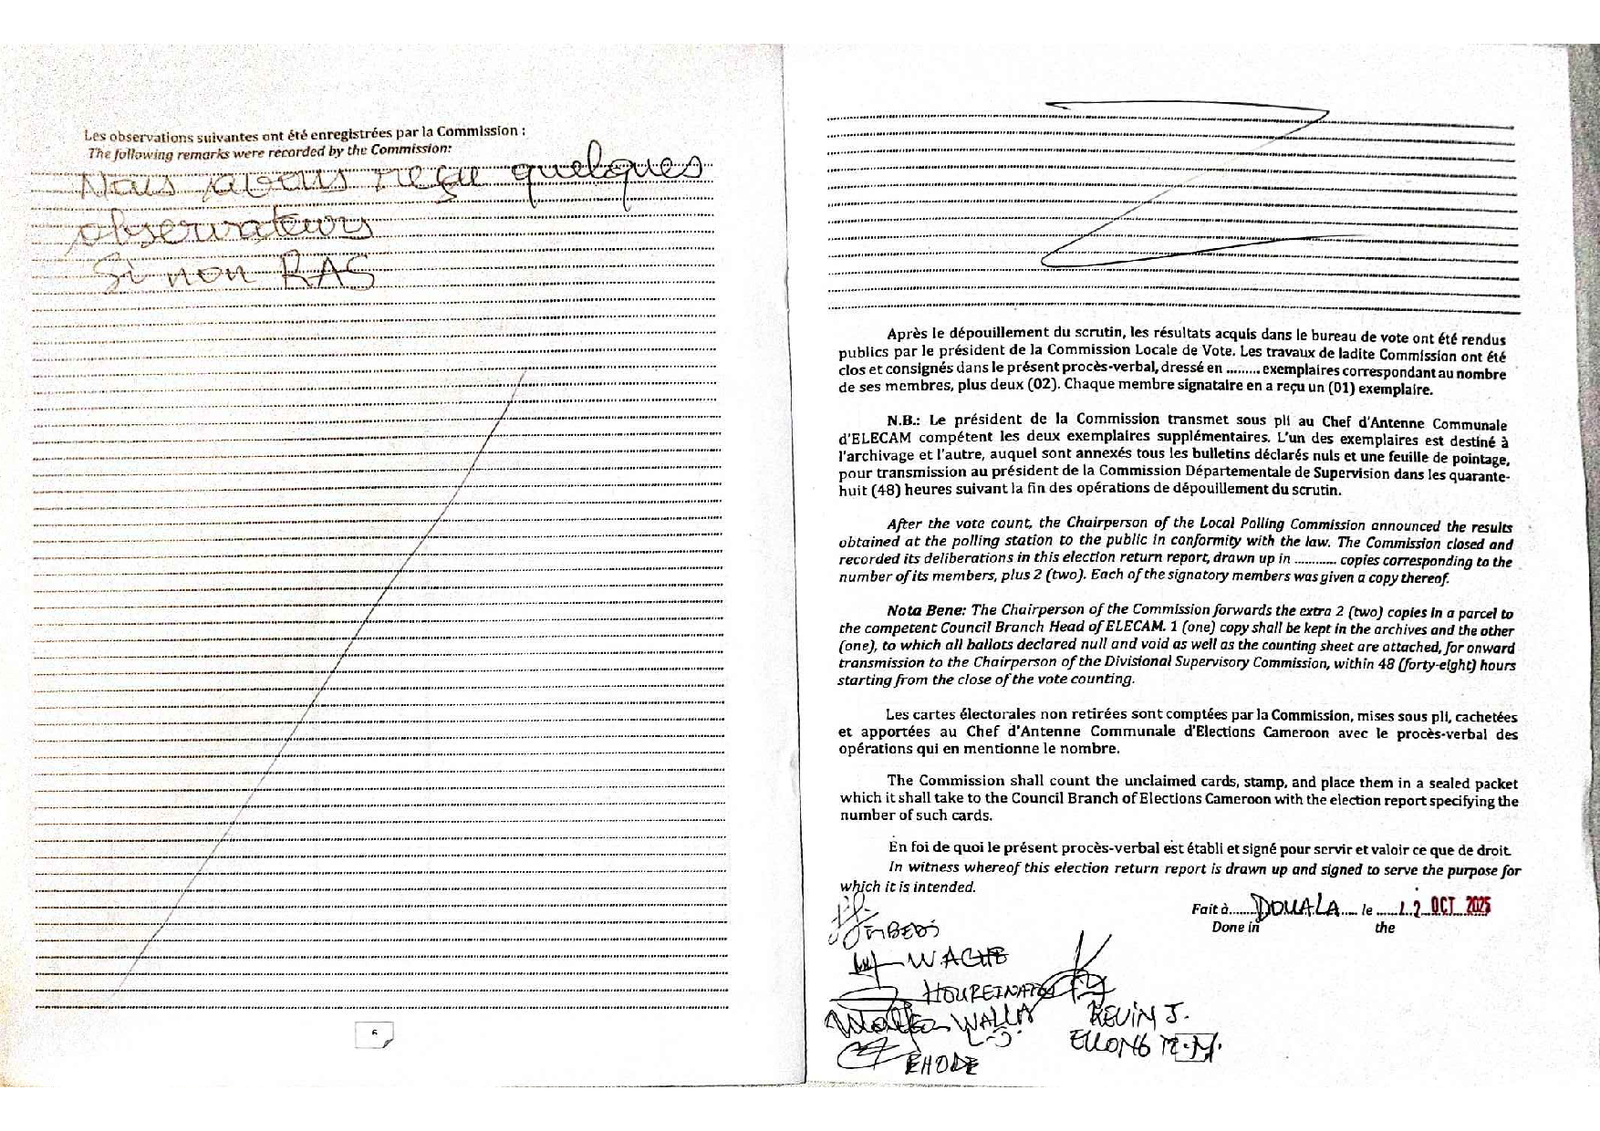 Les observations suivantes ont été enregistrées par la Commission :
The following remarks were recorded by the Commission:
Nous avons reçu quelques
observateurs
Si non RAS
6
Après le dépouillement du scrutin, les résultats acquis dans le bureau de vote ont été rendus
publics par le président de la Commission Locale de Vote. Les travaux de ladite Commission ont été
clos et consignés dans le présent procès-verbal, dressé en ......... exemplaires correspondant au nombre
de ses membres, plus deux (02). Chaque membre signataire en a reçu un (01) exemplaire.
N.B.: Le président de la Commission transmet sous pli au Chef d'Antenne Communale
d'ELECAM compétent les deux exemplaires supplémentaires. L'un des exemplaires est destiné à
l'archivage et l'autre, auquel sont annexés tous les bulletins déclarés nuls et une feuille de pointage,
pour transmission au président de la Commission Départementale de Supervision dans les quarante-
huit (48) heures suivant la fin des opérations de dépouillement du scrutin.
After the vote count, the Chairperson of the Local Polling Commission announced the results
obtained at the polling station to the public in conformity with the law. The Commission closed and
recorded its deliberations in this election return report, drawn up in ............ copies corresponding to the
number of its members, plus 2 (two). Each of the signatory members was given a copy thereof.
Nota Bene: The Chairperson of the Commission forwards the extra 2 (two) copies in a parcel to
the competent Council Branch Head of ELECAM. 1 (one) copy shall be kept in the archives and the other
(one), to which all ballots declared null and void as well as the counting sheet are attached, for onward
transmission to the Chairperson of the Divisional Supervisory Commission, within 48 (forty-eight) hours
starting from the close of the vote counting.
Les cartes électorales non retirées sont comptées par la Commission, mises sous pli, cachetées
et apportées au Chef d'Antenne Communale d'Elections Cameroon avec le procès-verbal des
opérations qui en mentionne le nombre.
The Commission shall count the unclaimed cards, stamp, and place them in a sealed packet
which it shall take to the Council Branch of Elections Cameroon with the election report specifying the
number of such cards.
En foi de quoi le présent procès-verbal est établi et signé pour servir et valoir ce que de droit.
In witness whereof this election return report is drawn up and signed to serve the purpose for
which it is intended.
Fait à...... DOUALA ..... le ..... 12 OCT 2025
Done in the
WACHE
HOUREINATOU
WALLA
RHODE
KEVIN J.
ELLONG